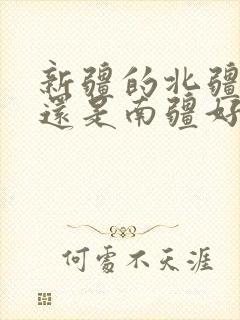 新疆的北疆
還是南疆好
何處不天涯